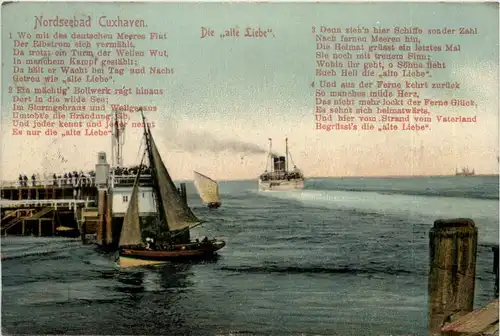 Nordseebad Cuxhaven.
Die „alte Liebe“.
1 Wo mit des deutschen Meeres Flut
Der Elbstrom sich vermählt,
Da trotzt ein Turm der Wellen Wut,
In manchem Kampf gestählt;
Da hält er Wacht bei Tag und Nacht
Getreu wie „alte Liebe“.
2 Ein mächtig' Bollwerk ragt hinaus
Dort in die wilde See;
Im Sturmgebraus und Wellgesaus
Umtobt's die Brandung jäh,
Und jeder kennt und jeder nennt
Es nur die „alte Liebe“
3 Denn zieh'n hier Schiffe sonder Zahl
Nach fernen Meeren hin,
Die Heimat grüsst ein letztes Mal
Sie noch mit treuem Sinn;
Wohin ihr geht, o Söhne fleht
Euch Heil die „alte Liebe“.
4 Und aus der Ferne kehrt zurück
So manches milde Herz,
Das nicht mehr lockt der Ferne Glück,
Es sehnt sich heimatwärts,
Und hier vom Strand vom Vaterland
Begrüsst's die „alte Liebe“.